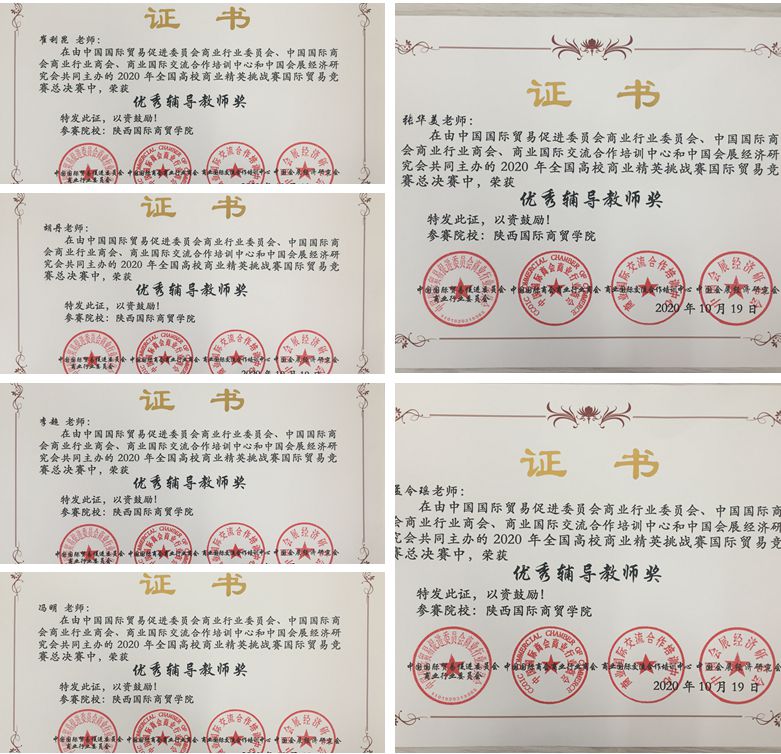 证 书
崔利昆 老师：
在由中国国际贸易促进委员会商业行业委员会、中国国际商
会商业行业商会、商业国际交流合作培训中心和中国会展经济研
究会共同主办的 2020 年全国高校商业精英挑战赛国际贸易竞
赛总决赛中，荣获
优秀辅导教师奖
特发此证，以资鼓励！
参赛院校：陕西国际商贸学院
中国国际贸易促进委员会 中国国际商会商业行业商会 商业国际交流合作培训中心 中国会展经济研究会
商业行业委员会
证 书
胡丹老师：
在由中国国际贸易促进委员会商业行业委员会、中国国际商
会商业行业商会、商业国际交流合作培训中心和中国会展经济研
究会共同主办的 2020 年全国高校商业精英挑战赛国际贸易竞
赛总决赛中，荣获
优秀辅导教师奖
特发此证，以资鼓励！
参赛院校：陕西国际商贸学院
中国国际贸易促进委员会 中国国际商会商业行业商会 商业国际交流合作培训中心 中国会展经济研究会
商业行业委员会
证 书
李超 老师：
在由中国国际贸易促进委员会商业行业委员会、中国国际商
会商业行业商会、商业国际交流合作培训中心和中国会展经济研
究会共同主办的 2020 年全国高校商业精英挑战赛国际贸易竞
赛总决赛中，荣获
优秀辅导教师奖
特发此证，以资鼓励！
参赛院校：陕西国际商贸学院
中国国际贸易促进委员会 中国国际商会商业行业商会 商业国际交流合作培训中心 中国会展经济研究会
商业行业委员会
证 书
冯明 老师：
在由中国国际贸易促进委员会商业行业委员会、中国国际商
会商业行业商会、商业国际交流合作培训中心和中国会展经济研
究会共同主办的 2020 年全国高校商业精英挑战赛国际贸易竞
赛总决赛中，荣获
优秀辅导教师奖
特发此证，以资鼓励！
参赛院校：陕西国际商贸学院
中国国际贸易促进委员会 中国国际商会商业行业商会 商业国际交流合作培训中心 中国会展经济研究会
商业行业委员会
证 书
张华美老师：
在由中国国际贸易促进委员会商业行业委员会、中国国际商
会商业行业商会、商业国际交流合作培训中心和中国会展经济研
究会共同主办的 2020 年全国高校商业精英挑战赛国际贸易竞
赛总决赛中，荣获
优秀辅导教师奖
特发此证，以资鼓励！
参赛院校：陕西国际商贸学院
中国国际贸易促进委员会 中国国际商会商业行业商会 商业国际交流合作培训中心 中国会展经济研究会
商业行业委员会
2020 年 10 月 19 日
证 书
孟令瑶老师：
在由中国国际贸易促进委员会商业行业委员会、中国国际商
会商业行业商会、商业国际交流合作培训中心和中国会展经济研
究会共同主办的 2020 年全国高校商业精英挑战赛国际贸易竞
赛总决赛中，荣获
优秀辅导教师奖
特发此证，以资鼓励！
参赛院校：陕西国际商贸学院
中国国际贸易促进委员会 中国国际商会商业行业商会 商业国际交流合作培训中心 中国会展经济研究会
商业行业委员会
2020 年 10 月 19 日